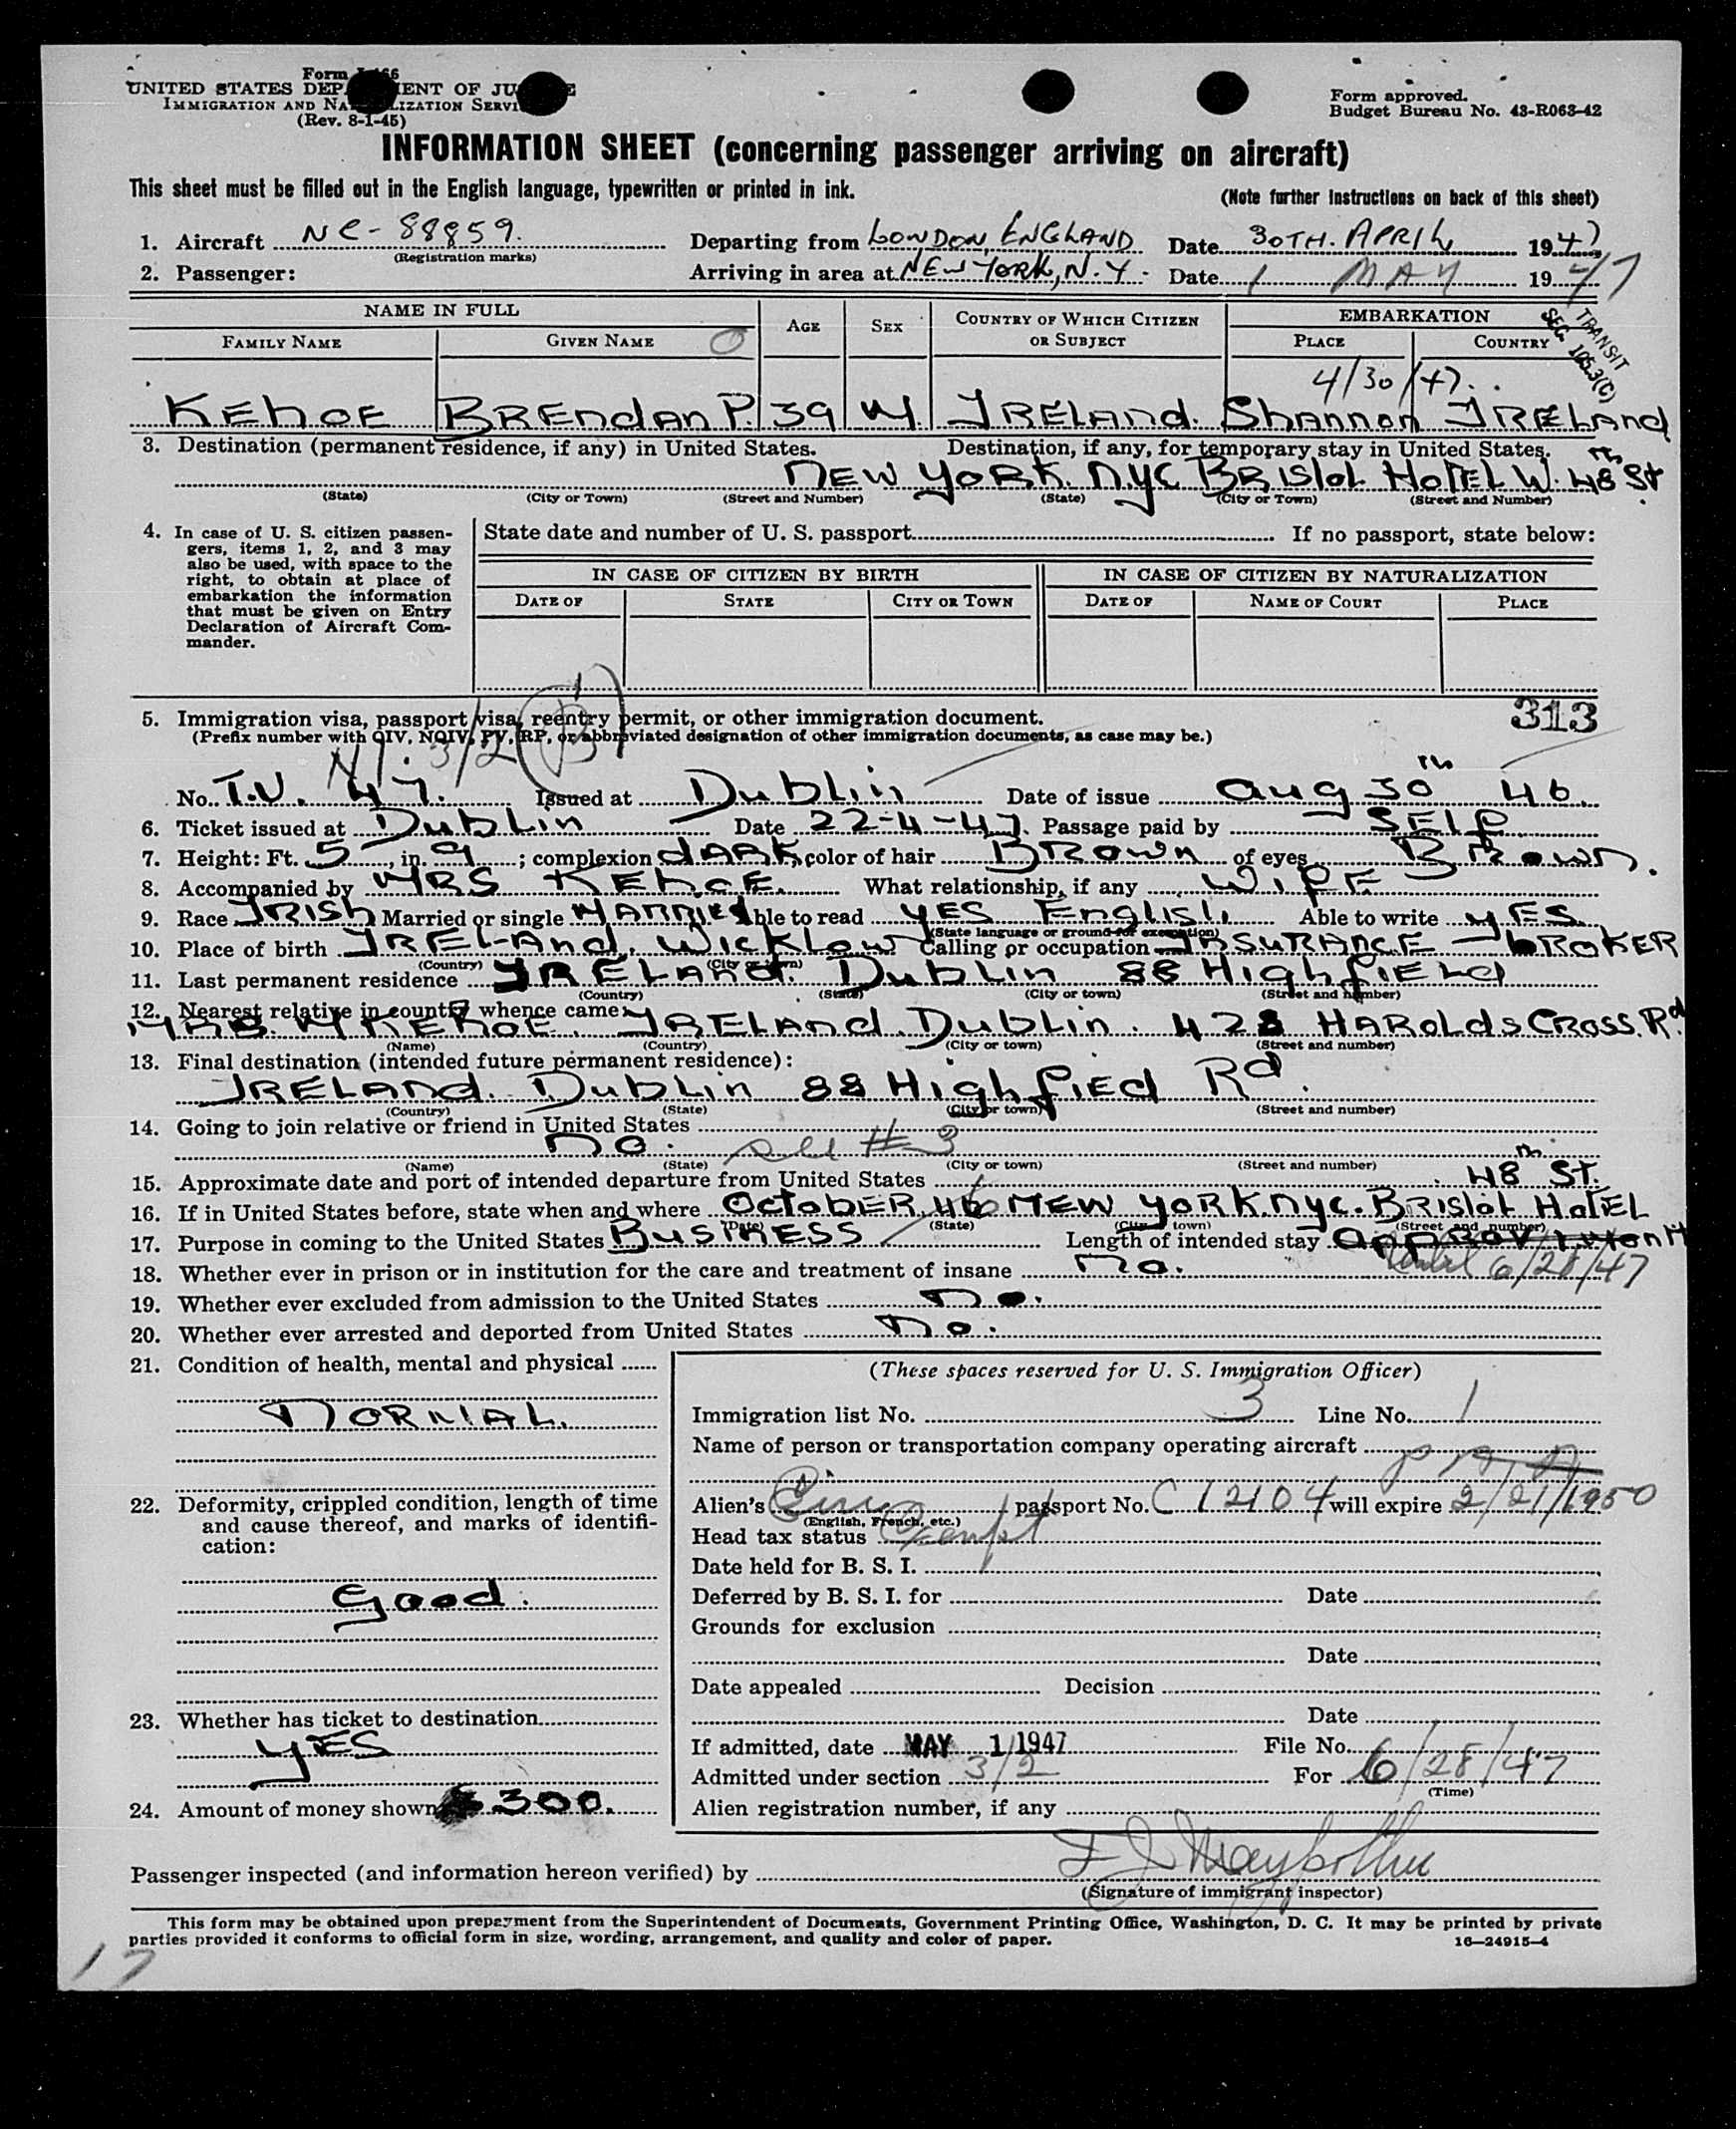 Form I-466
UNITED STATES DEPARTMENT OF JUSTICE
IMMIGRATION AND NATURALIZATION SERVICE
(Rev. 8-1-45)
Form approved.
Budget Bureau No. 43-R063-42
INFORMATION SHEET (concerning passenger arriving on aircraft)
This sheet must be filled out in the English language, typewritten or printed in ink.
(Note further instructions on back of this sheet)
1. Aircraft NC-88859. Departing from LONDON, ENGLAND Date 30TH. APRIL 1947
(Registration marks)
2. Passenger: Arriving in area at NEW YORK, N.Y. Date 1 MAY 1947
NAME IN FULL AGE SEX COUNTRY OF WHICH CITIZEN OR SUBJECT EMBARKATION
FAMILY NAME GIVEN NAME PLACE COUNTRY
TRANSIT
SEC. 105.3(C)
4/30/47.
KEhOE BREndAn P. 39 M. IRELAnd. ShAnnon IRELAnd
3. Destination (permanent residence, if any) in United States. Destination, if any, for temporary stay in United States.
NEW YORK. NYC BRIStOL HOTEL W. 48th St
(State) (City or Town) (Street and Number) (State) (City or Town) (Street and Number)
4. In case of U. S. citizen passengers, items 1, 2, and 3 may also be used, with space to the right, to obtain at place of embarkation the information that must be given on Entry Declaration of Aircraft Commander.
State date and number of U. S. passport If no passport, state below:
IN CASE OF CITIZEN BY BIRTH IN CASE OF CITIZEN BY NATURALIZATION
DATE OF STATE CITY OR TOWN DATE OF NAME OF COURT PLACE
313
5. Immigration visa, passport visa, reentry permit, or other immigration document.
(Prefix number with QIV, NQIV, PV, RP, or abbreviated designation of other immigration documents, as case may be.)
3/2
No. T.V. 47. Issued at DubLin Date of issue Aug 30th 46.
6. Ticket issued at DubLin Date 22-4-47. Passage paid by SELF
7. Height: Ft. 5, in. 9; complexion dARK color of hair BROWN of eyes BROWN.
8. Accompanied by MRS KEhOE. What relationship, if any WIFE
9. Race IRISh Married or single MARRIEd Able to read YES English Able to write YES.
(State language or ground for exemption)
10. Place of birth IRELAnd. WICKLOW Calling or occupation INSURANCE BROKER
(Country) (City or town)
11. Last permanent residence IRELAND. DubLin 88 HIghfIELd
(Country) (State) (City or town) (Street and number)
12. Nearest relative in country whence came:
MRS. M KEHOE. IRELAnd. DubLin. 428 HAROLdS CROSS. Rd
(Name) (Country) (City or town) (Street and number)
13. Final destination (intended future permanent residence):
IRELANd. DubLin 88 HIghfIEd Rd.
(Country) (State) (City or town) (Street and number)
14. Going to join relative or friend in United States
NO. see #3
(Name) (State) (City or town) (Street and number)
15. Approximate date and port of intended departure from United States
48th ST.
16. If in United States before, state when and where OctobER 46 NEW YORK. NYC. BRIStOL HOTEL
(Date) (State) (City or town) (Street and number)
17. Purpose in coming to the United States BUSINESS Length of intended stay APPROX 1 MonTH
until 6/28/47
18. Whether ever in prison or in institution for the care and treatment of insane No.
19. Whether ever excluded from admission to the United States No.
20. Whether ever arrested and deported from United States No.
21. Condition of health, mental and physical
NORMAL.
22. Deformity, crippled condition, length of time and cause thereof, and marks of identification:
Good.
23. Whether has ticket to destination
YES
24. Amount of money shown $300.
(These spaces reserved for U. S. Immigration Officer)
Immigration list No. 3 Line No. 1
Name of person or transportation company operating aircraft
P A A
Alien's Eire passport No. C 12104 will expire 2/21/1950
(English, French, etc.)
Head tax status Exempt
Date held for B. S. I.
Deferred by B. S. I. for Date
Grounds for exclusion
Date
Date appealed Decision
Date
If admitted, date MAY 1 1947 File No.
Admitted under section 3/2 For 6/28/47
(Time)
Alien registration number, if any
Passenger inspected (and information hereon verified) by
(Signature of immigrant inspector)
This form may be obtained upon prepayment from the Superintendent of Documents, Government Printing Office, Washington, D. C. It may be printed by private
parties provided it conforms to official form in size, wording, arrangement, and quality and color of paper.
16—24915-4
17